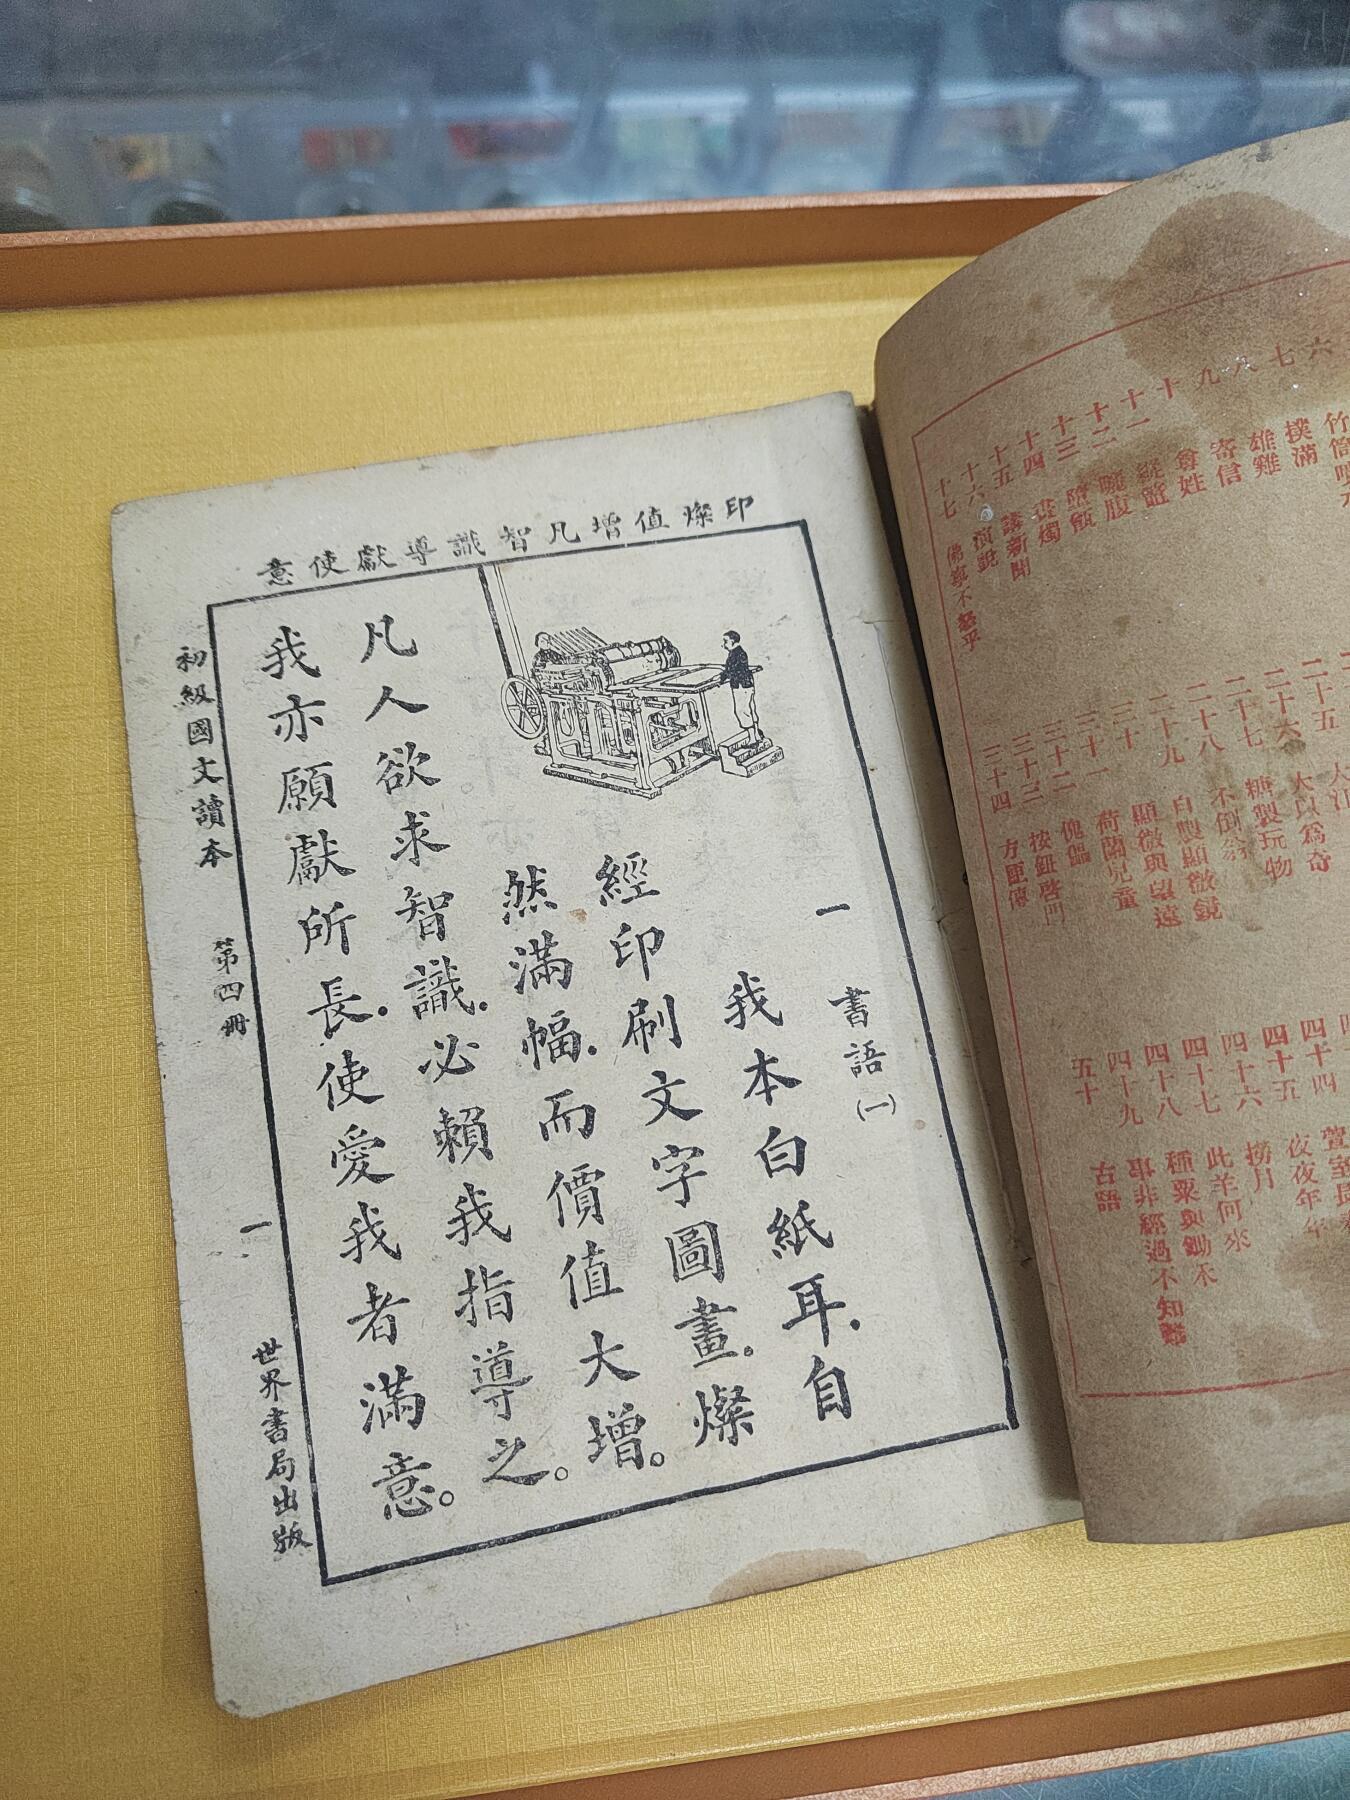 印燦值增凡智識導獻使意
一 書語㈠
我本白紙耳．自
經印刷文字圖畫。燦
然滿幅．而價值大增。
凡人欲求智識．必賴我指導之。
我亦願獻所長．使愛我者滿意。
初級國文讀本 第四冊 一 世界書局出版
六
七 撲滿
八 雄雞
九 寄信
十 尊姓
十一
十二
十三 墮甑
十四 晝燭
十五 講新聞
十六 演說
十七
二十五 大江
二十六 大以爲奇
二十七 糖製玩物
二十八 不倒翁
二十九 自製顯微鏡
三十 顯微與望遠
三十一 荷蘭兒童
三十二 傀儡
三十三 按鈕啓門
三十四
四十四
四十五 夜夜年年
四十六 撈月
四十七 此羊何來
四十八 種粟與鋤禾
四十九 事非經過不知難
五十 古語